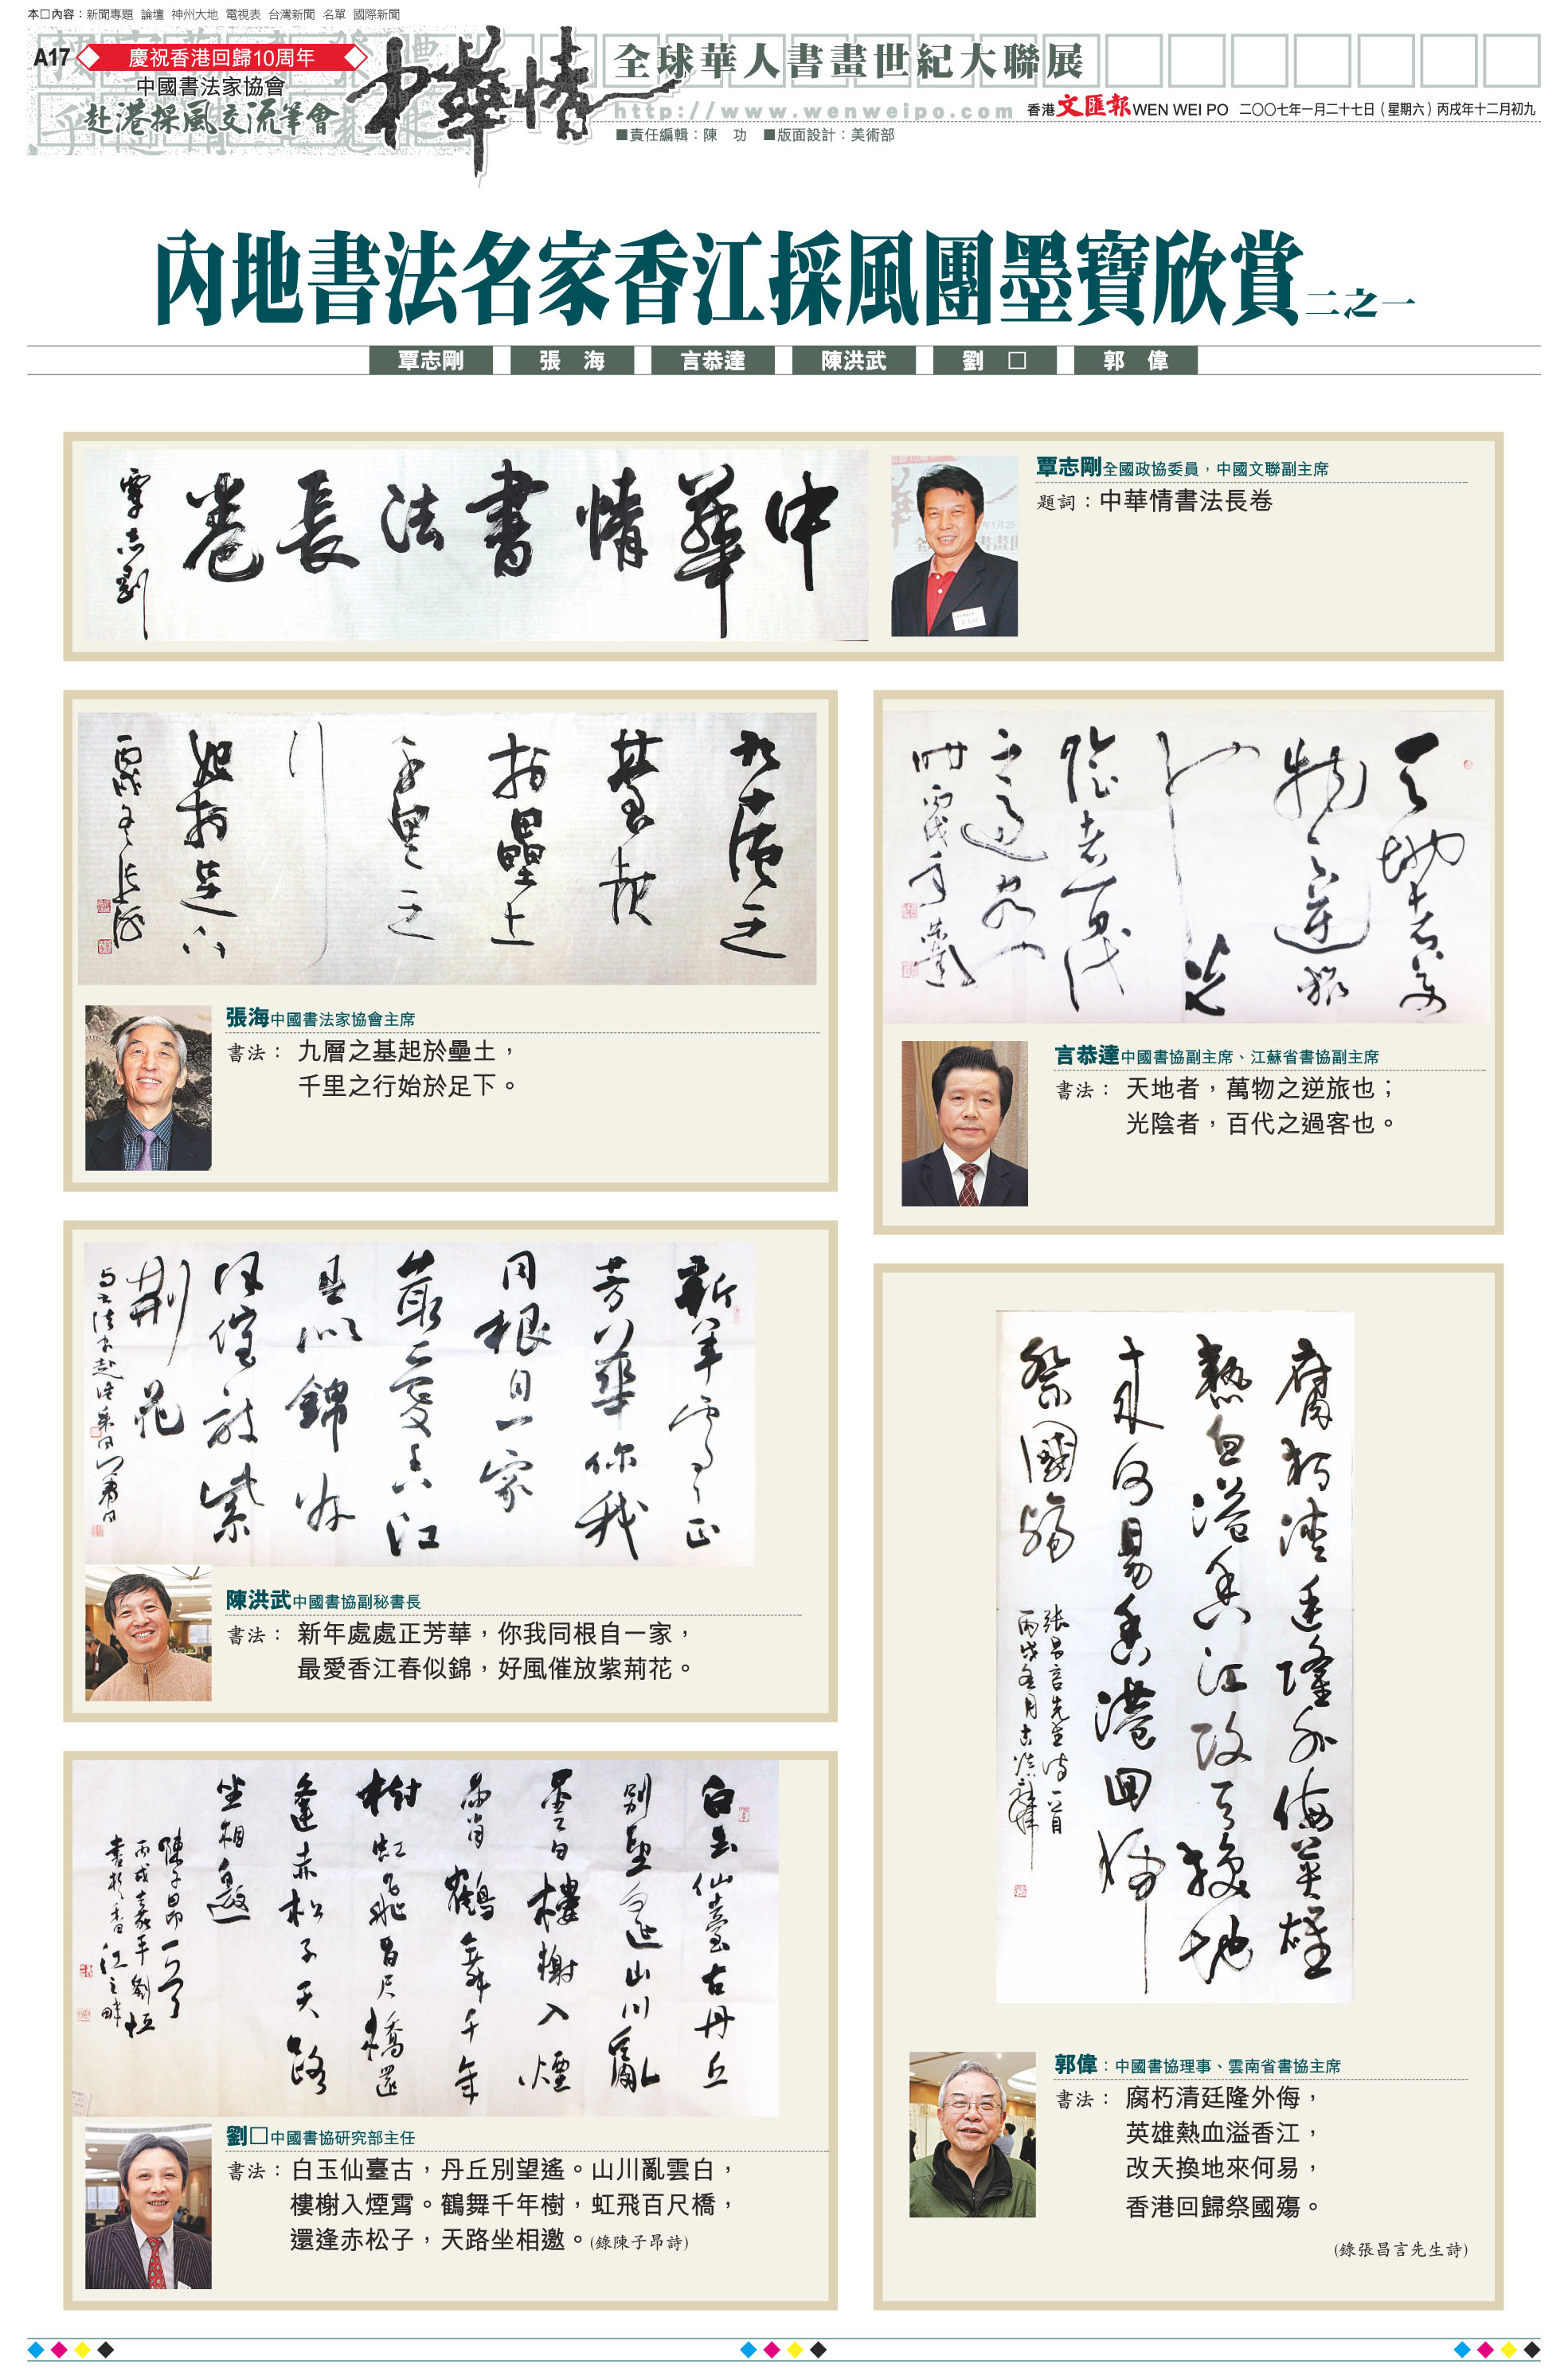 本□內容：新聞專題 論壇 神州大地 電視表 台灣新聞 名單 國際新聞
A17
慶祝香港回歸10周年
中國書法家協會
赴港採風交流筆會
中華情
全球華人書畫世紀大聯展
http://www.wenweipo.com
香港文匯報WEN WEI PO 二〇〇七年一月二十七日（星期六）丙戌年十二月初九
■責任編輯：陳 功 ■版面設計：美術部
內地書法名家香江採風團墨寶欣賞二之一
覃志剛 張 海 言恭達 陳洪武 劉 □ 郭 偉
中華情書法長卷
覃志剛
覃志剛全國政協委員，中國文聯副主席
題詞：中華情書法長卷
九層之
基起
於壘土
千里之
行
始於足下
張海中國書法家協會主席
書法： 九層之基起於壘土，
千里之行始於足下。
天地者萬
物之逆旅
也光
陰者百代
之過客也
言恭達中國書協副主席、江蘇省書協副主席
書法： 天地者，萬物之逆旅也；
光陰者，百代之過客也。
新年處處正
芳華你我
同根自一家
最愛香江
春似錦好
風催放紫
荊花
陳洪武中國書協副秘書長
書法： 新年處處正芳華，你我同根自一家，
最愛香江春似錦，好風催放紫荊花。
白玉仙臺古丹丘
別望遙山川亂
雲白樓榭入煙
霄鶴舞千年
樹虹飛百尺橋還
逢赤松子天路
坐相邀
陳子昂
丙戌嘉平劉恒
書於香江之畔
劉□中國書協研究部主任
書法：白玉仙臺古，丹丘別望遙。山川亂雲白，
樓榭入煙霄。鶴舞千年樹，虹飛百尺橋，
還逢赤松子，天路坐相邀。(錄陳子昂詩)
腐朽清廷隆外侮英雄
熱血溢香江改天換地
來何易香港回歸
祭國殤
張昌言先生詩一首
郭偉：中國書協理事、雲南省書協主席
書法： 腐朽清廷隆外侮，
英雄熱血溢香江，
改天換地來何易，
香港回歸祭國殤。
(錄張昌言先生詩)